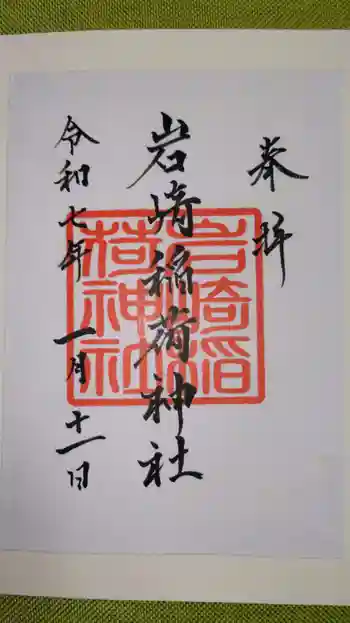 奉拝
岩崎稲荷神社
令和七年 一月十一日
岩崎稲
荷神社